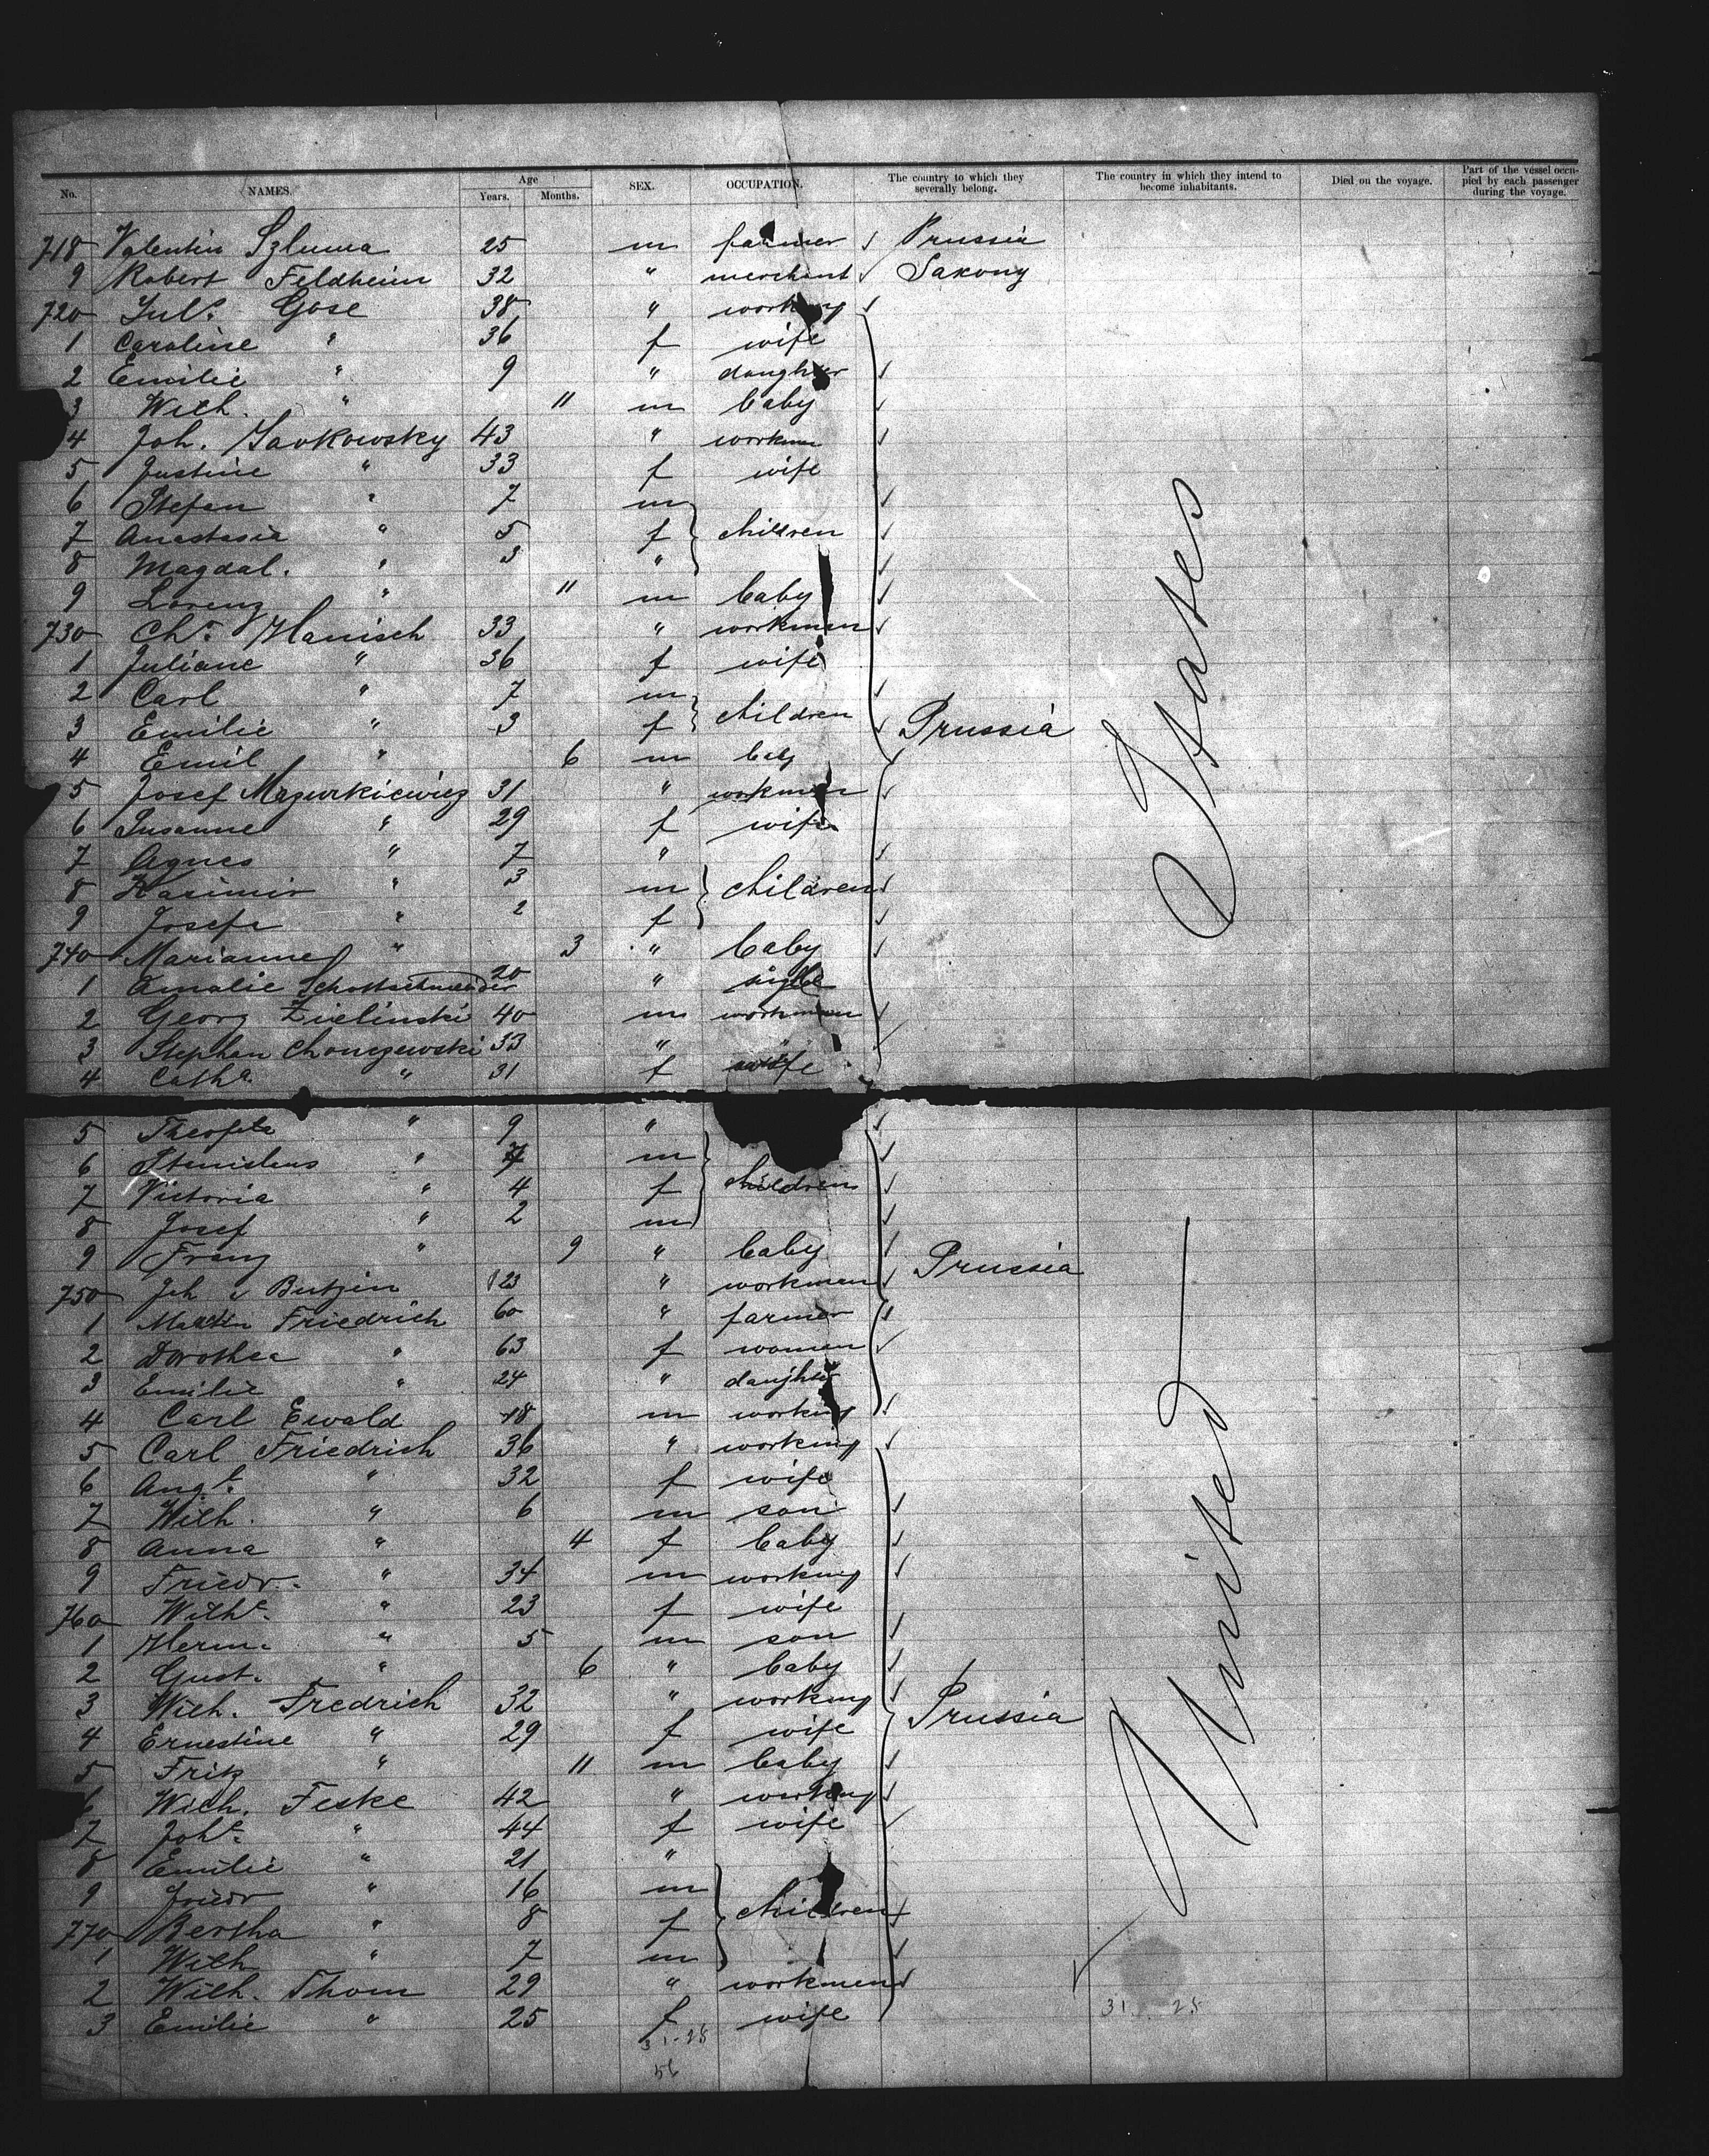 No. NAMES. Age Years. Months. SEX. OCCUPATION. The country to which they severally belong. The country in which they intend to become inhabitants. Died on the voyage. Part of the vessel occupied by each passenger during the voyage.
718 Valentin Szluma 25 m farmer Prussia
9 Robert Feldheim 32 " merchant Saxony
720 Jul. Gose 38 " working
1 Caroline " 36 f wife
2 Emilie " 9 " daughter
3 Wilh. " 11 m baby
4 Joh. Savkowsky 43 " workmen
5 Justine " 33 f wife
6 Stefan " 7 m
7 Anastasia " 5 f children
8 Magdal. " 3 "
9 Lorenz " 11 m baby
730 Chr. Hanisch 33 " workmen
1 Juliane " 36 f wife
2 Carl " 7 m
3 Emilie " 3 f children Prussia
4 Emil " 6 m baby
5 Josef Mazurkiewicz 31 " workmen
6 Susanne " 29 f wife
7 Agnes " 7 "
8 Kasimir " 3 m children
9 Josefa " 2 f
740 Marianne " 3 " baby
1 Amalie 20 " single
2 Georg Zielinski 40 m workmen
3 Stephan Chonczewski 33 "
4 Cath. " 31 f wife
5 Theofila " 9 "
6 Stanislaus " 7 m
7 Victoria " 4 f children
8 Josef " 2 m
9 Franz " 9 " baby Prussia
750 Joh Butzin 23 " workmen
1 Martin Friedrich 60 " farmer
2 Dorothea " 63 f women
3 Emilie " 24 " daughter
4 Carl Ewald 18 m working
5 Carl Friedrich 36 " working
6 Aug. " 32 f wife
7 Wilh. " 6 m son
8 Anna " 4 f baby
9 Friedr. " 34 m working
760 Wilh. " 23 f wife
1 Herm. " 5 m son
2 Gust. " 6 " baby
3 Wilh. Fredrich 32 " working Prussia
4 Ernestine " 29 f wife
5 Fritz " 11 m baby
6 Wilh. Feske 42 " working
7 Joh. " 44 f wife
8 Emilie " 21 "
9 Friedr " 16 m
770 Bertha " 8 f children
1 Wilh " 7 m
2 Wilh. Thom 29 " workmen
3 Emilie " 25 f wife
31-25 31 25
56
United States